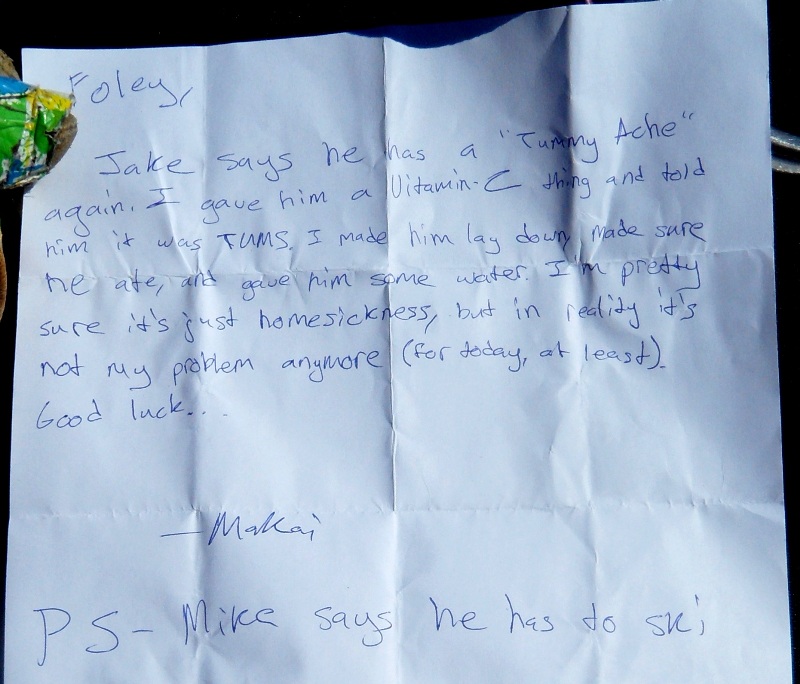 Foley,
Jake says he has a "Tummy Ache"
again. I gave him a Vitamin-C thing and told
him it was TUMS. I made him lay down, made sure
he ate, and gave him some water. I'm pretty
sure it's just homesickness, but in reality it's
not my problem anymore (for today, at least).
Good luck...
—Makai
PS- Mike says he has to ski